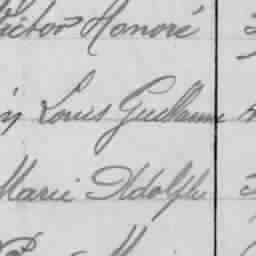 Victor Honoré
Louis Guillaume
Marie Adolphe